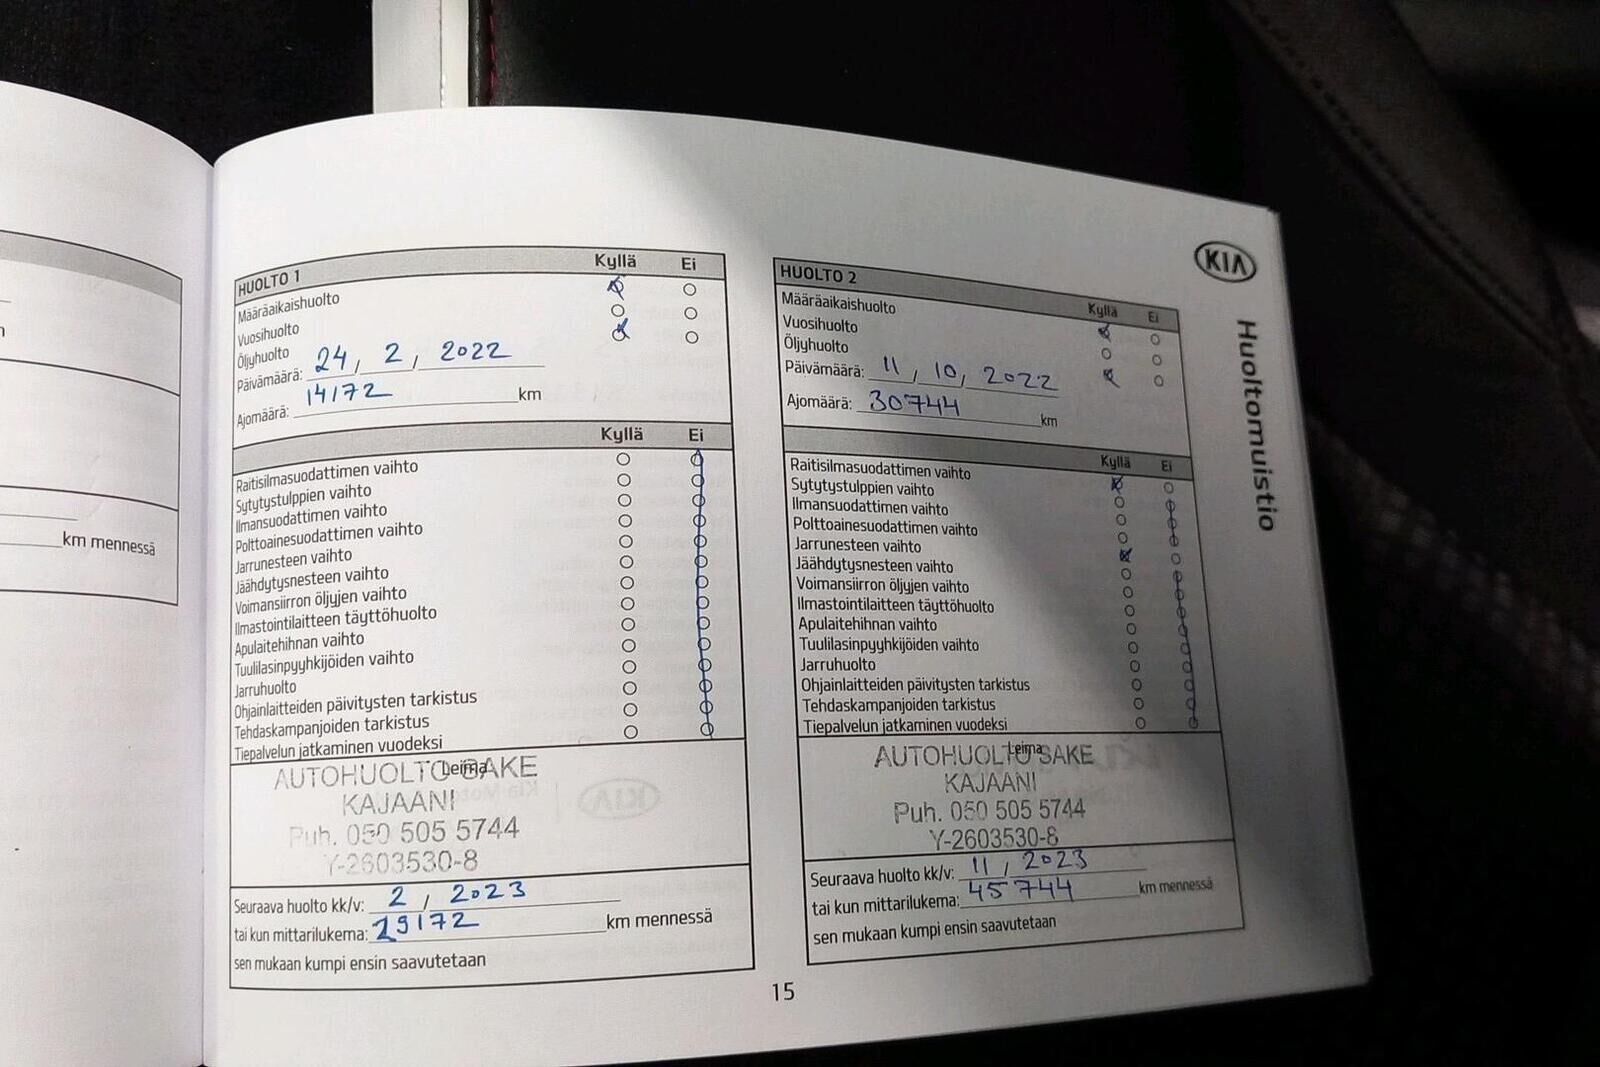 km mennessä
HUOLTO 1 Kyllä Ei
Määräaikaishuolto
Vuosihuolto
Öljyhuolto
Päivämäärä: 24, 2, 2022
Ajomäärä: 14172 km
Kyllä Ei
Raitisilmasuodattimen vaihto
Sytytystulppien vaihto
Ilmansuodattimen vaihto
Polttoainesuodattimen vaihto
Jarrunesteen vaihto
Jäähdytysnesteen vaihto
Voimansiirron öljyjen vaihto
Ilmastointilaitteen täyttöhuolto
Apulaitehihnan vaihto
Tuulilasinpyyhkijöiden vaihto
Jarruhuolto
Ohjainlaitteiden päivitysten tarkistus
Tehdaskampanjoiden tarkistus
Tiepalvelun jatkaminen vuodeksi
Leima
AUTOHUOLTO SAKE
KAJAANI
Puh. 050 505 5744
Y-2603530-8
Seuraava huolto kk/v: 2 / 2023
tai kun mittarilukema: 29172 km mennessä
sen mukaan kumpi ensin saavutetaan
HUOLTO 2 Kyllä Ei
Määräaikaishuolto
Vuosihuolto
Öljyhuolto
Päivämäärä: 11, 10, 2022
Ajomäärä: 30744 km
Kyllä Ei
Raitisilmasuodattimen vaihto
Sytytystulppien vaihto
Ilmansuodattimen vaihto
Polttoainesuodattimen vaihto
Jarrunesteen vaihto
Jäähdytysnesteen vaihto
Voimansiirron öljyjen vaihto
Ilmastointilaitteen täyttöhuolto
Apulaitehihnan vaihto
Tuulilasinpyyhkijöiden vaihto
Jarruhuolto
Ohjainlaitteiden päivitysten tarkistus
Tehdaskampanjoiden tarkistus
Tiepalvelun jatkaminen vuodeksi
Leima
AUTOHUOLTO SAKE
KAJAANI
Puh. 050 505 5744
Y-2603530-8
Seuraava huolto kk/v: 11 / 2023
tai kun mittarilukema: 45744 km mennessä
sen mukaan kumpi ensin saavutetaan
KIA
Huoltomuistio
15